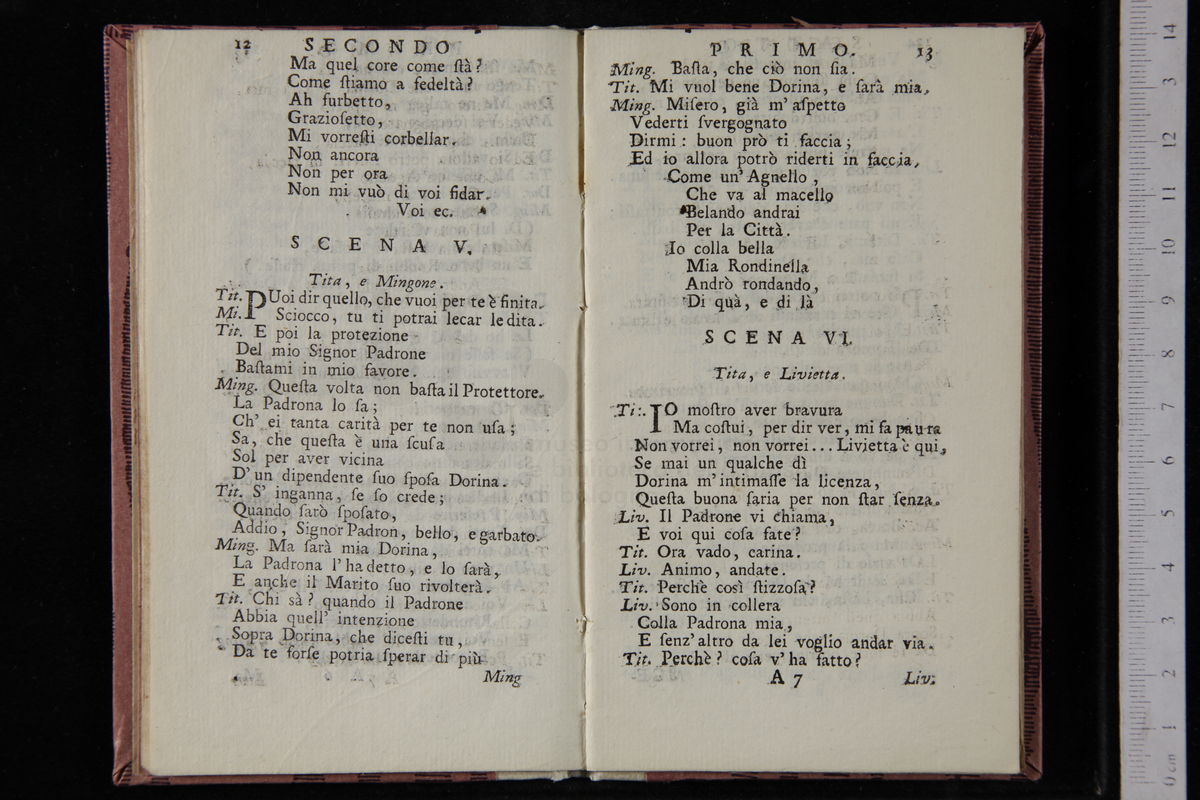 12 SECONDO
Ma quel core come ſtà?
Come ſtiamo a fedeltà?
Ah furbetto,
Grazioſetto,
Mi vorreſti corbellar.
Non ancora
Non per ora
Non mi vuò di voi fidar.
Voi ec.
SCENA V.
Tita, e Mingone.
Tit. PUoi dir quello, che vuoi per te è finita.
Mi. Sciocco, tu ti potrai lecar le dita.
Tit. E poi la protezione
Del mio Signor Padrone
Baſtami in mio favore.
Ming. Queſta volta non baſta il Protettore.
La Padrona lo ſa;
Ch' ei tanta carità per te non uſa;
Sa, che queſta è una ſcuſa
Sol per aver vicina
D' un dipendente ſuo ſpoſa Dorina.
Tit. S' inganna, ſe ſo crede;
Quando ſarò ſpoſato,
Addio, Signor Padron, bello, e garbato.
Ming. Ma ſarà mia Dorina,
La Padrona l' ha detto, e lo ſarà,
E anche il Marito ſuo rivolterà.
Tit. Chi sà? quando il Padrone
Abbia quell' intenzione
Sopra Dorina, che diceſti tu,
Da te forſe potria ſperar di più
Ming
PRIMO. 13
Ming. Baſta, che ciò non ſia.
Tit. Mi vuol bene Dorina, e ſarà mia.
Ming. Miſero, già m' aſpetto
Vederti ſvergognato
Dirmi: buon prò ti faccia;
Ed io allora potrò riderti in faccia.
Come un' Agnello,
Che va al macello
Belando andrai
Per la Città.
Io colla bella
Mia Rondinella
Andrò rondando,
Di quà, e di là
SCENA VI.
Tita, e Livietta.
Tit. IO moſtro aver bravura
Ma coſtui, per dir ver, mi fa paura
Non vorrei, non vorrei... Livietta è qui,
Se mai un qualche dì
Dorina m' intimaſſe la licenza,
Queſta buona ſaria per non ſtar ſenza.
Liv. Il Padrone vi chiama,
E voi qui coſa fate?
Tit. Ora vado, carina.
Liv. Animo, andate.
Tit. Perchè così ſtizzoſa?
Liv. Sono in collera
Colla Padrona mia,
E ſenz' altro da lei voglio andar via.
Tit. Perchè? coſa v' ha fatto?
A 7 Liv.